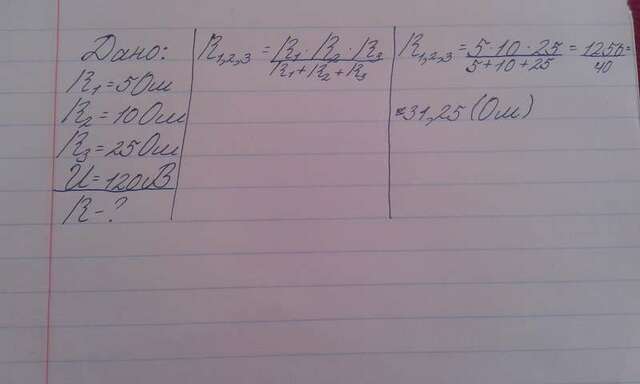 Дано:
R₁ = 5 Ом
R₂ = 10 Ом
R₃ = 25 Ом
U = 120 В
R - ?
R₁,₂,₃ = R₁ · R₂ · R₃ / R₁ + R₂ + R₃
R₁,₂,₃ = 5 · 10 · 25 / 5 + 10 + 25 = 1250 / 40 =
= 31,25 (Ом)